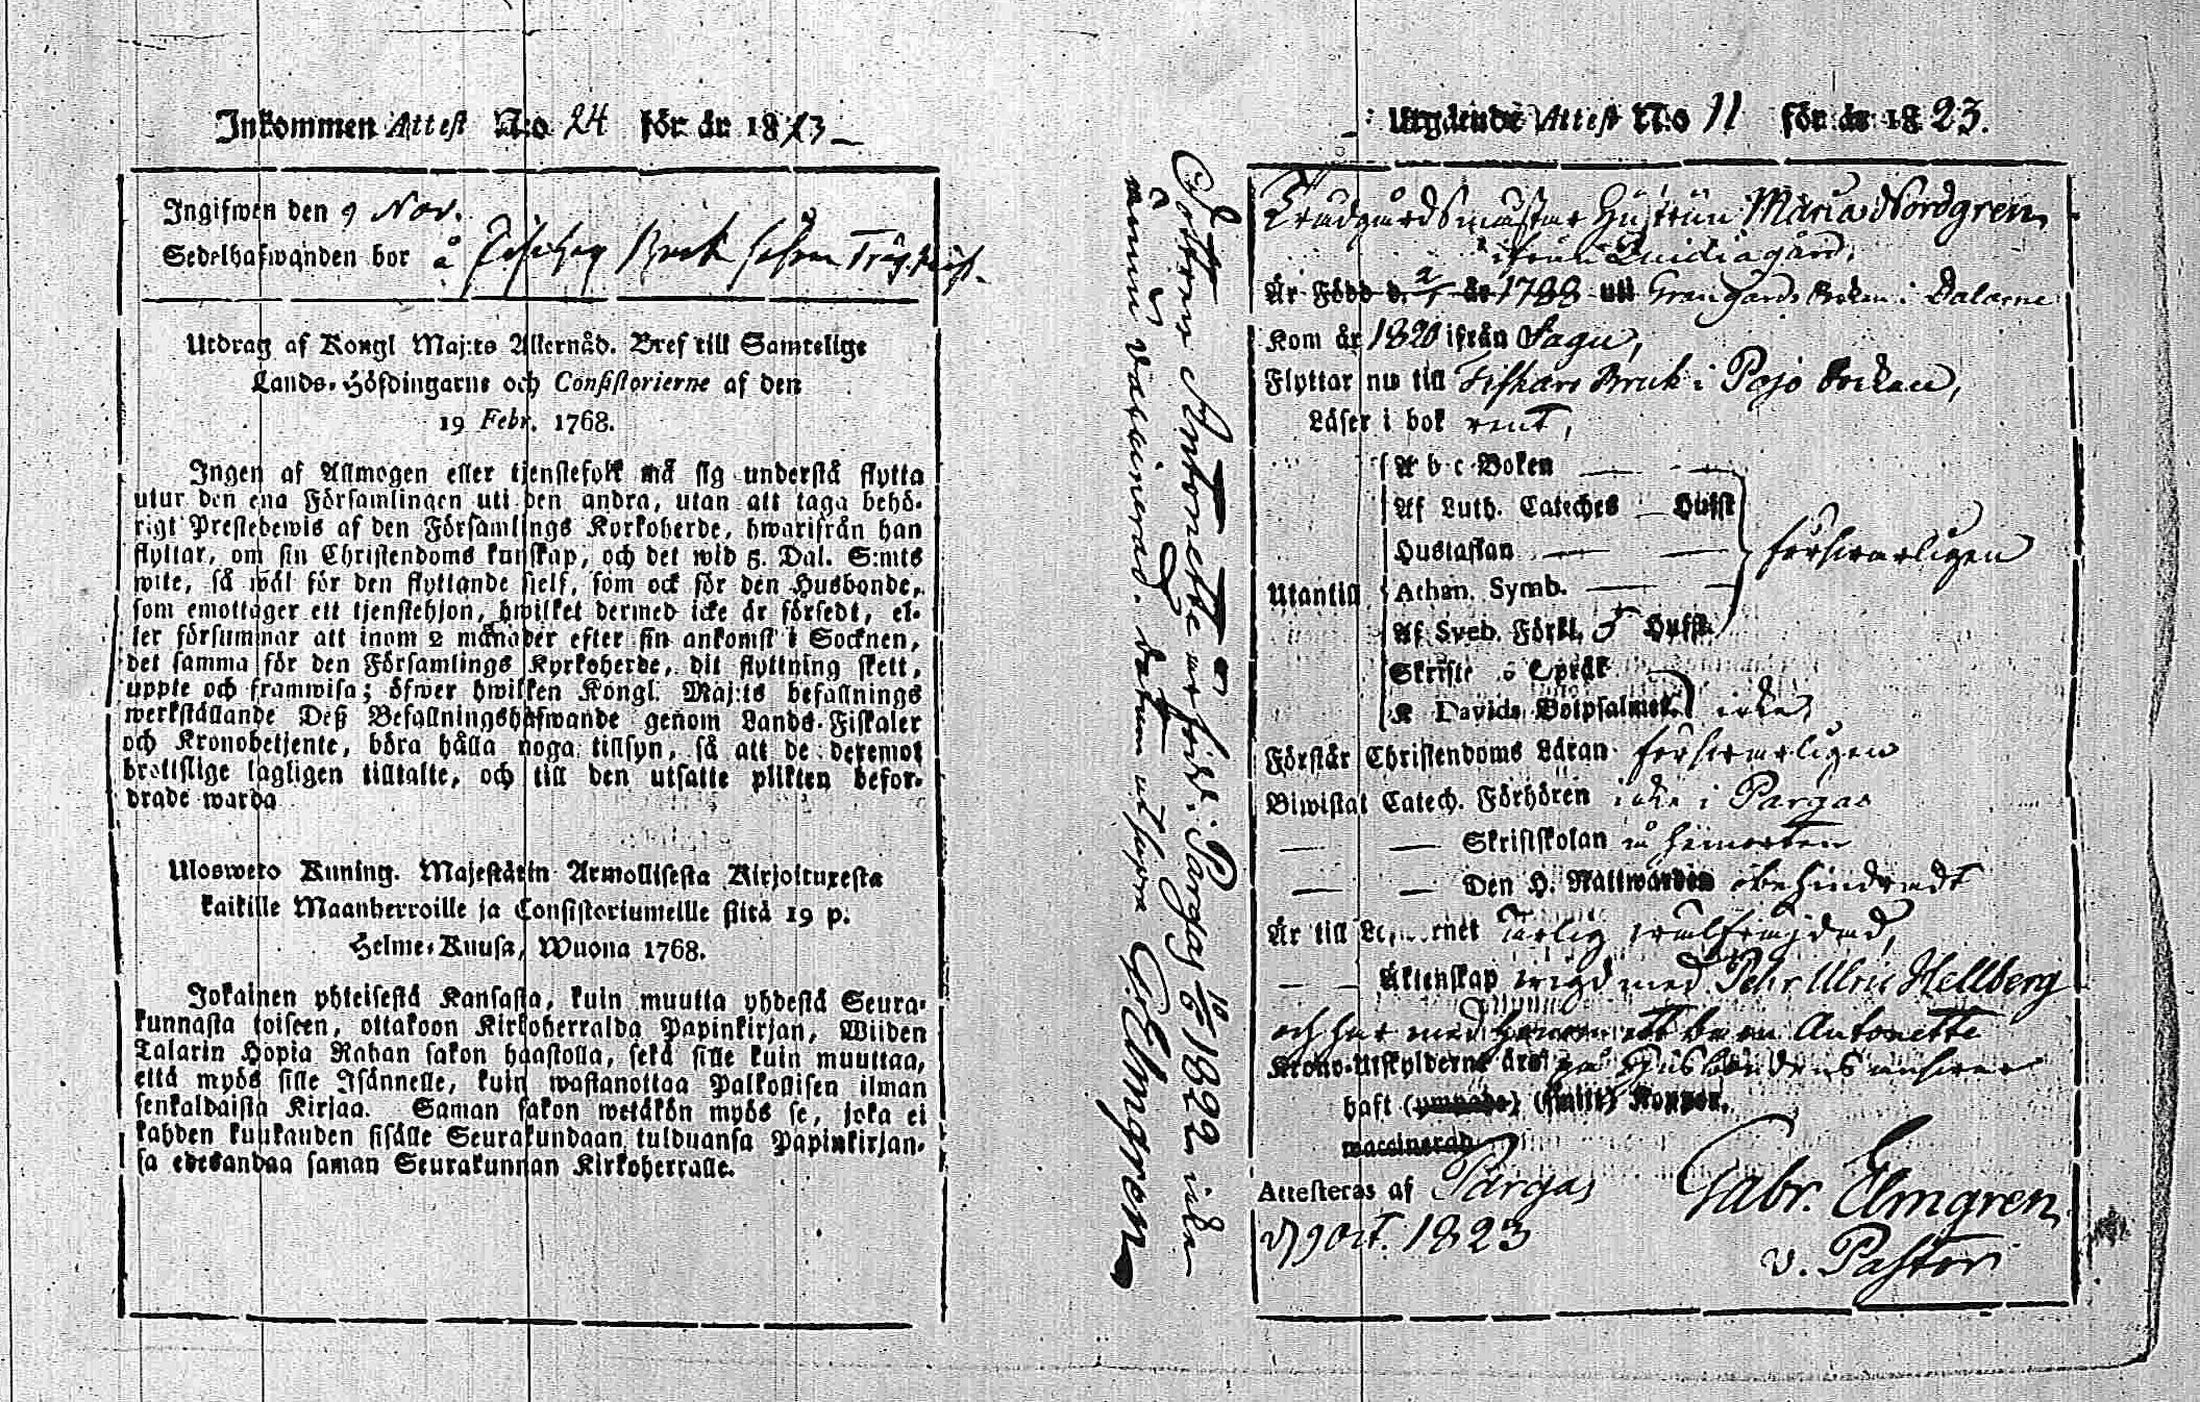 Inkommen Attest No 24 för år 1823
Ingifwen den 9 Nov.
Sedelhafwanden bor å Bruk
Utdrag af Kongl Maj:ts Allernåd. Bref till Samtelige
Lands-Höfdingarne och Consistorierne af den
19 Febr. 1768.
Ingen af Allmogen eller tjenstefolk må sig understå flytta
utur den ena Församlingen uti den andra, utan att taga behö-
rigt Prestebewis af den Församlings Kyrkoherde, hwarifrån han
flyttar, om sin Christendoms kunskap, och det wid 5. Dal. S:mts
wite, så wäl för den flyttande sielf, som ock för den Husbonde,
som emottager ett tjenstehjon, hwilket dermed icke är försedt, el-
ler försummar att inom 2 månader efter sin ankomst i Socknen,
det samma för den Församlings Kyrkoherde, dit flyttning skett,
uppte och framwisa; öfwer hwilken Kongl. Maj:ts befallnings
werkställande Deß Befallningshafwande genom Lands-Fiskaler
och Kronobetjente, böra hålla noga tillsyn, så att de deremot
brottslige lagligen tilltalte, och till den utsatte plikten befor-
drade warda
Ulosweto Kuning. Majestätin Armollisesta Kirjoituxesta
kaikille Maanherroille ja Consistoriumeille siitä 19 p.
Helme-Kuusa, Wuona 1768.
Jokainen yhteisestä Kansasta, kuin muutta yhdestä Seura-
kunnasta toiseen, ottakoon Kirkoherralda Papinkirjan, Wiiden
Talarin Hopia Rahan sakon haastolla, sekä sille kuin muuttaa,
että myös sille Isännelle, kuin wastanottaa Palkollisen ilman
senkaldaista Kirjaa. Saman sakon wetäkön myös se, joka ei
kahden kuukauden sisälle Seurakundaan tulduansa Papinkirjan-
sa edesandaa saman Seurakunnan Kirkoherralle.
Dottren Antonette är född i Pargas 10/6 1822 icke
ännu vaccinerad. datum ut supra G. Elmgren
Utgående Attest No 11 för år 1823.
Trädgårdsmästar Hustrun Maria Nordgren
ifrån Qvidia gård,
Är Född d. 2/1 år 1788 uti Grangärds Socken i Dalarne
Kom år 1820 ifrån Sagu,
Flyttar nu till Fiskars Bruk i Pojo Socken,
Läser i bok rent,
A b c Boken
Af Luth. Cateches Hufst
Hustaflan
försvarligen
Utantill Athan. Symb.
Af Sveb. Förkl. 5 Hufst.
Skrifte Språk
K Davids Botpsalmer icke,
Förstår Christendoms Läran försvarligen
Biwistat Catech. Förhören icke i Pargas
Skriftskolan å hemorten
Den H. Nattwarden obehindradt
Är till Lefwernet ärlig välfrejdad,
Äktenskap vigd med Pehr Ulric Hellberg
och har med honom ett barn Antonette
Krono-Utskylderne äro på Husbondens ansvar
haft (smitt) Koppor.
waccinerad
Attesteras af Pargas
d 9 Oct. 1823
Gabr. Elmgren
v. Pastor